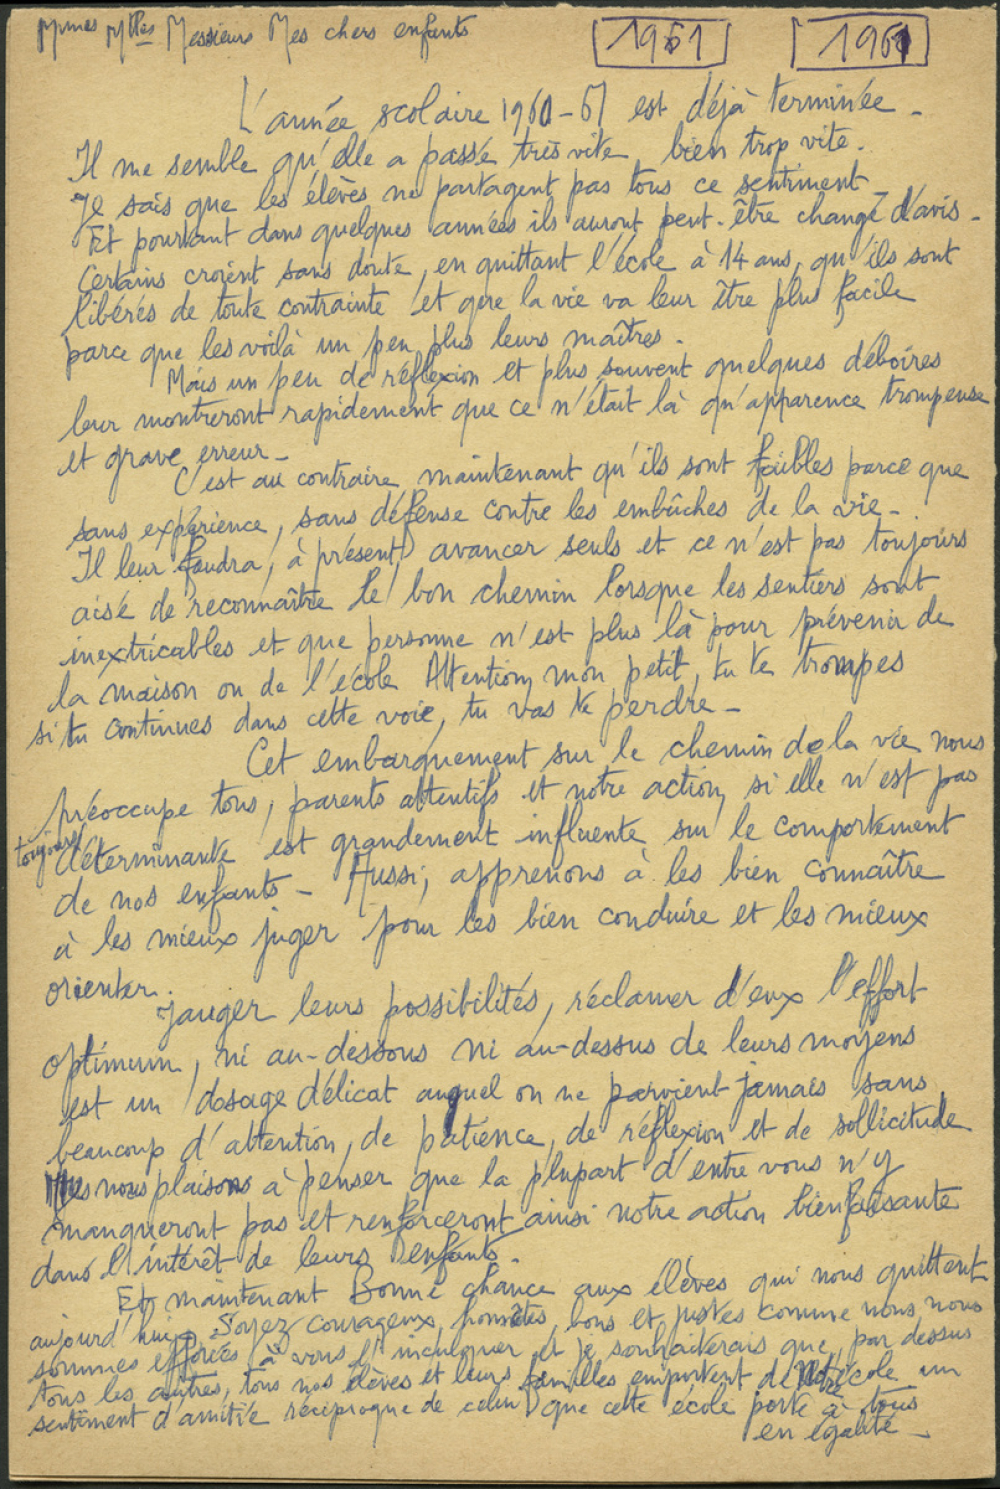 Mmes Mlles Messieurs Mes chers enfants
1961
1961
L'année scolaire 1960-61 est déjà terminée.
Il me semble qu'elle a passé très vite bien trop vite.
Je sais que les élèves ne partagent pas tous ce sentiment -
Et pourtant dans quelques années ils auront peut-être changé d'avis -
Certains croient sans doute, en quittant l'école à 14 ans, qu'ils sont
libérés de toute contrainte et que la vie va leur être plus facile
parce que les voilà un peu plus leurs maîtres.
Mais un peu de réflexion et plus souvent quelques déboires
leur montreront rapidement que ce n'était là qu'apparence trompeuse
et grave erreur -
C'est au contraire maintenant qu'ils sont faibles parce que
sans expérience, sans défense contre les embûches de la vie -
Il leur faudra, à présent, avancer seuls et ce n'est pas toujours
aisé de reconnaître le bon chemin lorsque les sentiers sont
inextricables et que personne n'est plus là pour prévenir de
la maison ou de l'école Attention, mon petit, tu te trompes
si tu continues dans cette voie, tu vas te perdre -
Cet embarquement sur le chemin de la vie nous
préoccupe tous, parents attentifs et notre action, si elle n'est pas
toujours déterminante est grandement influente sur le comportement
de nos enfants - Aussi, apprenons à les bien connaître
à les mieux juger pour les bien conduire et les mieux
orienter.
Jauger leurs possibilités, réclamer d'eux l'effort
optimum, ni au-dessous ni au-dessus de leurs moyens
est un dosage délicat auquel on ne parvient jamais sans
beaucoup d'attention, de patience, de réflexion et de sollicitude
nous plaisons à penser que la plupart d'entre vous n'y
manqueront pas et renforceront ainsi notre action bienfaisante
dans l'intérêt de leurs enfants.
Et maintenant Bonne chance aux élèves qui nous quittent
aujourd'hui. Soyez courageux, honnêtes, bons et justes comme nous nous
sommes efforcés à vous l'inculquer et je souhaiterais que, par dessus
tous les autres, tous nos élèves et leurs familles emportent de Notre école un
sentiment d'amitié réciproque de celui que cette école porte à tous
en égalité -